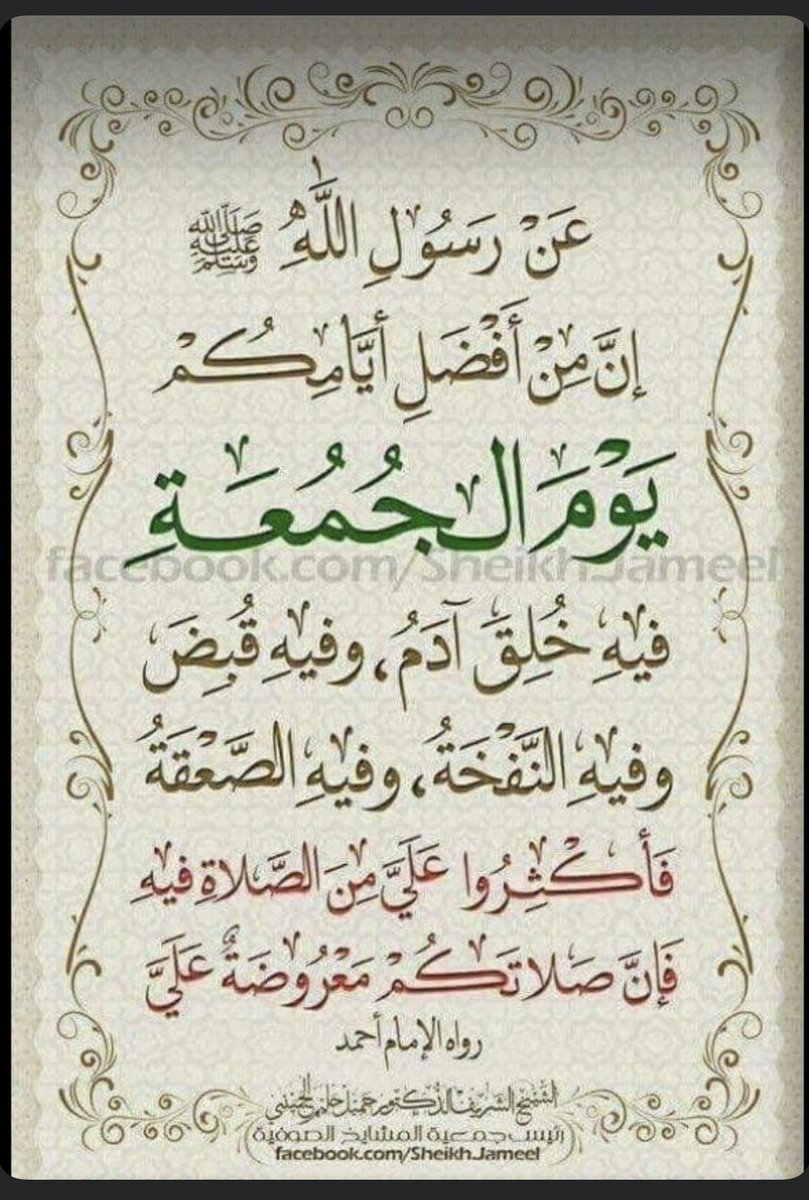 عَنْ رَسُولِ اللَّهِ ﷺ
إنَّ مِنْ أَفْضَلِ أيَّامِكُمْ
يَوْمَ الجُمُعَةِ
facebook.com/Sheikh.Jameel
فيهِ خُلِقَ آدَمُ، وفيهِ قُبِضَ
وفيهِ النَّفْخَةُ، وفيهِ الصَّعْقَةُ
فَأَكْثِرُوا عَلَيَّ مِنَ الصَّلاةِ فيهِ
فَإنَّ صَلاتَكُمْ مَعْرُوضَةٌ عَلَيَّ
رواه الإمام أحمد
الشيخ الشريف الدكتور جميل حليم الحسيني
رئيس جمعية المشايخ الصوفية
facebook.com/Sheikh.Jameel